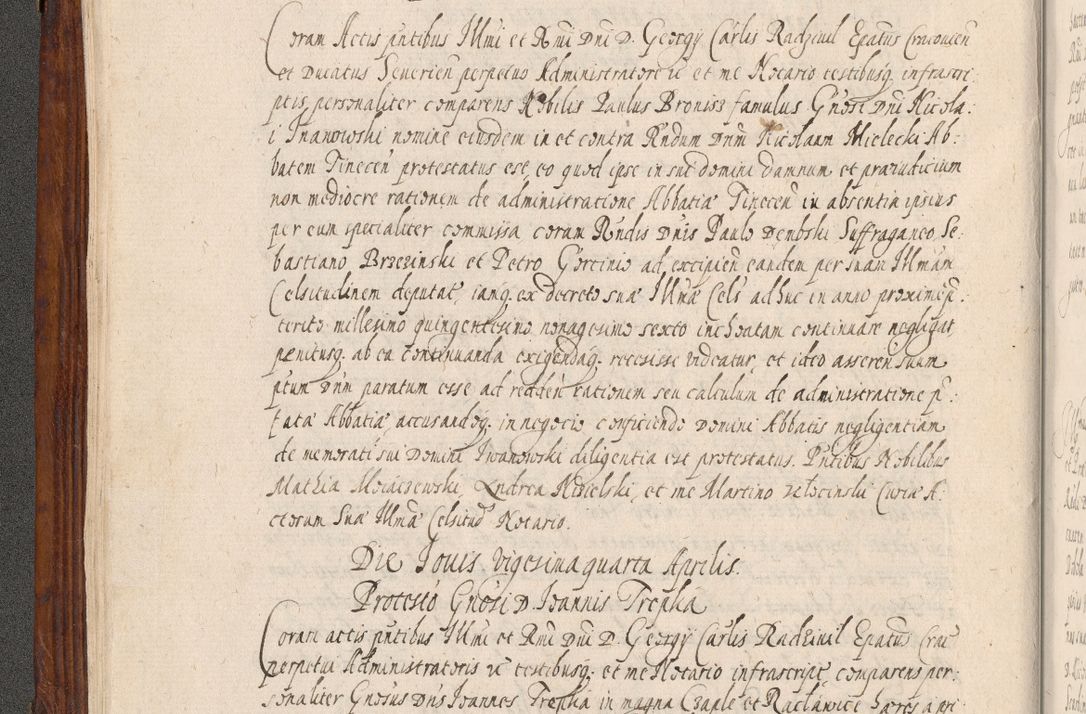 Coram Actis pñtibus Illmi et Rmi Dni D. Georgÿ Carlis Radziuil Epatus Cracoucñ
et Ducatus Seueriēn perpetuo Administratore ūc et me Notario testibusq. infrascri
ptis, personaliter comparens Nobilis Paulus Bronisz famulus Gñosi Dni Nicola:
i Iwanowski nomine eiusdem in et contra Rndum Dnm Nicolaum Mielecki Ab:
batem Tinecēn protestatus est, eo quod ipse in sui domini damnum et præiudicium
non mediocre rationem de administratione Abbatiæ Tinecēn in absentia ipsius
per eum specialiter commissa coram Rndis Dnis Paulo Dembski Suffraganeo, Se:
bastiano Brzezinski et Petro Gorcinio ad excipieñ eandem per suam Illmam
Celsitudinem deputat, iamq. ex decreto suæ Illmæ Cels adhuc in anno proxime p̄:
terito millesimo quingentesimo nonagesimo sexto inchoatam continuare negligat,
penitusq. ab ea continuanda exigendaq. recessisse videatur, et ideo asseren suum
ptum Dnm paratum esse ad redden rationem seu calculum de administratione p̄:
fatæ Abbatiæ, accusandoq. in negocio conficiendo Domini Abbatis negligentiam
de memorati sui Domini Iwanowski diligentia est protestatus. Pñtibus Nobilibus
Mathia Andrea Nidielski, et me Martino Curiæ A:
ctorum Suæ Illmæ Celsitud Notario.
Die Iouis vigesima quarta Aprilis.
Protestō Gñosi D. Ioannis Trepka
Coram actis pñtibus Illmi et Rmi Dni D. Georgÿ Carlis Radziuil Epatus Crac
perpetui Administratoris ūc testibusq. et me Notario infrascript, comparens per:
sonaliter Gñosus Dns Ioannes Trepka in magna Czaple et Raclawice hæres a